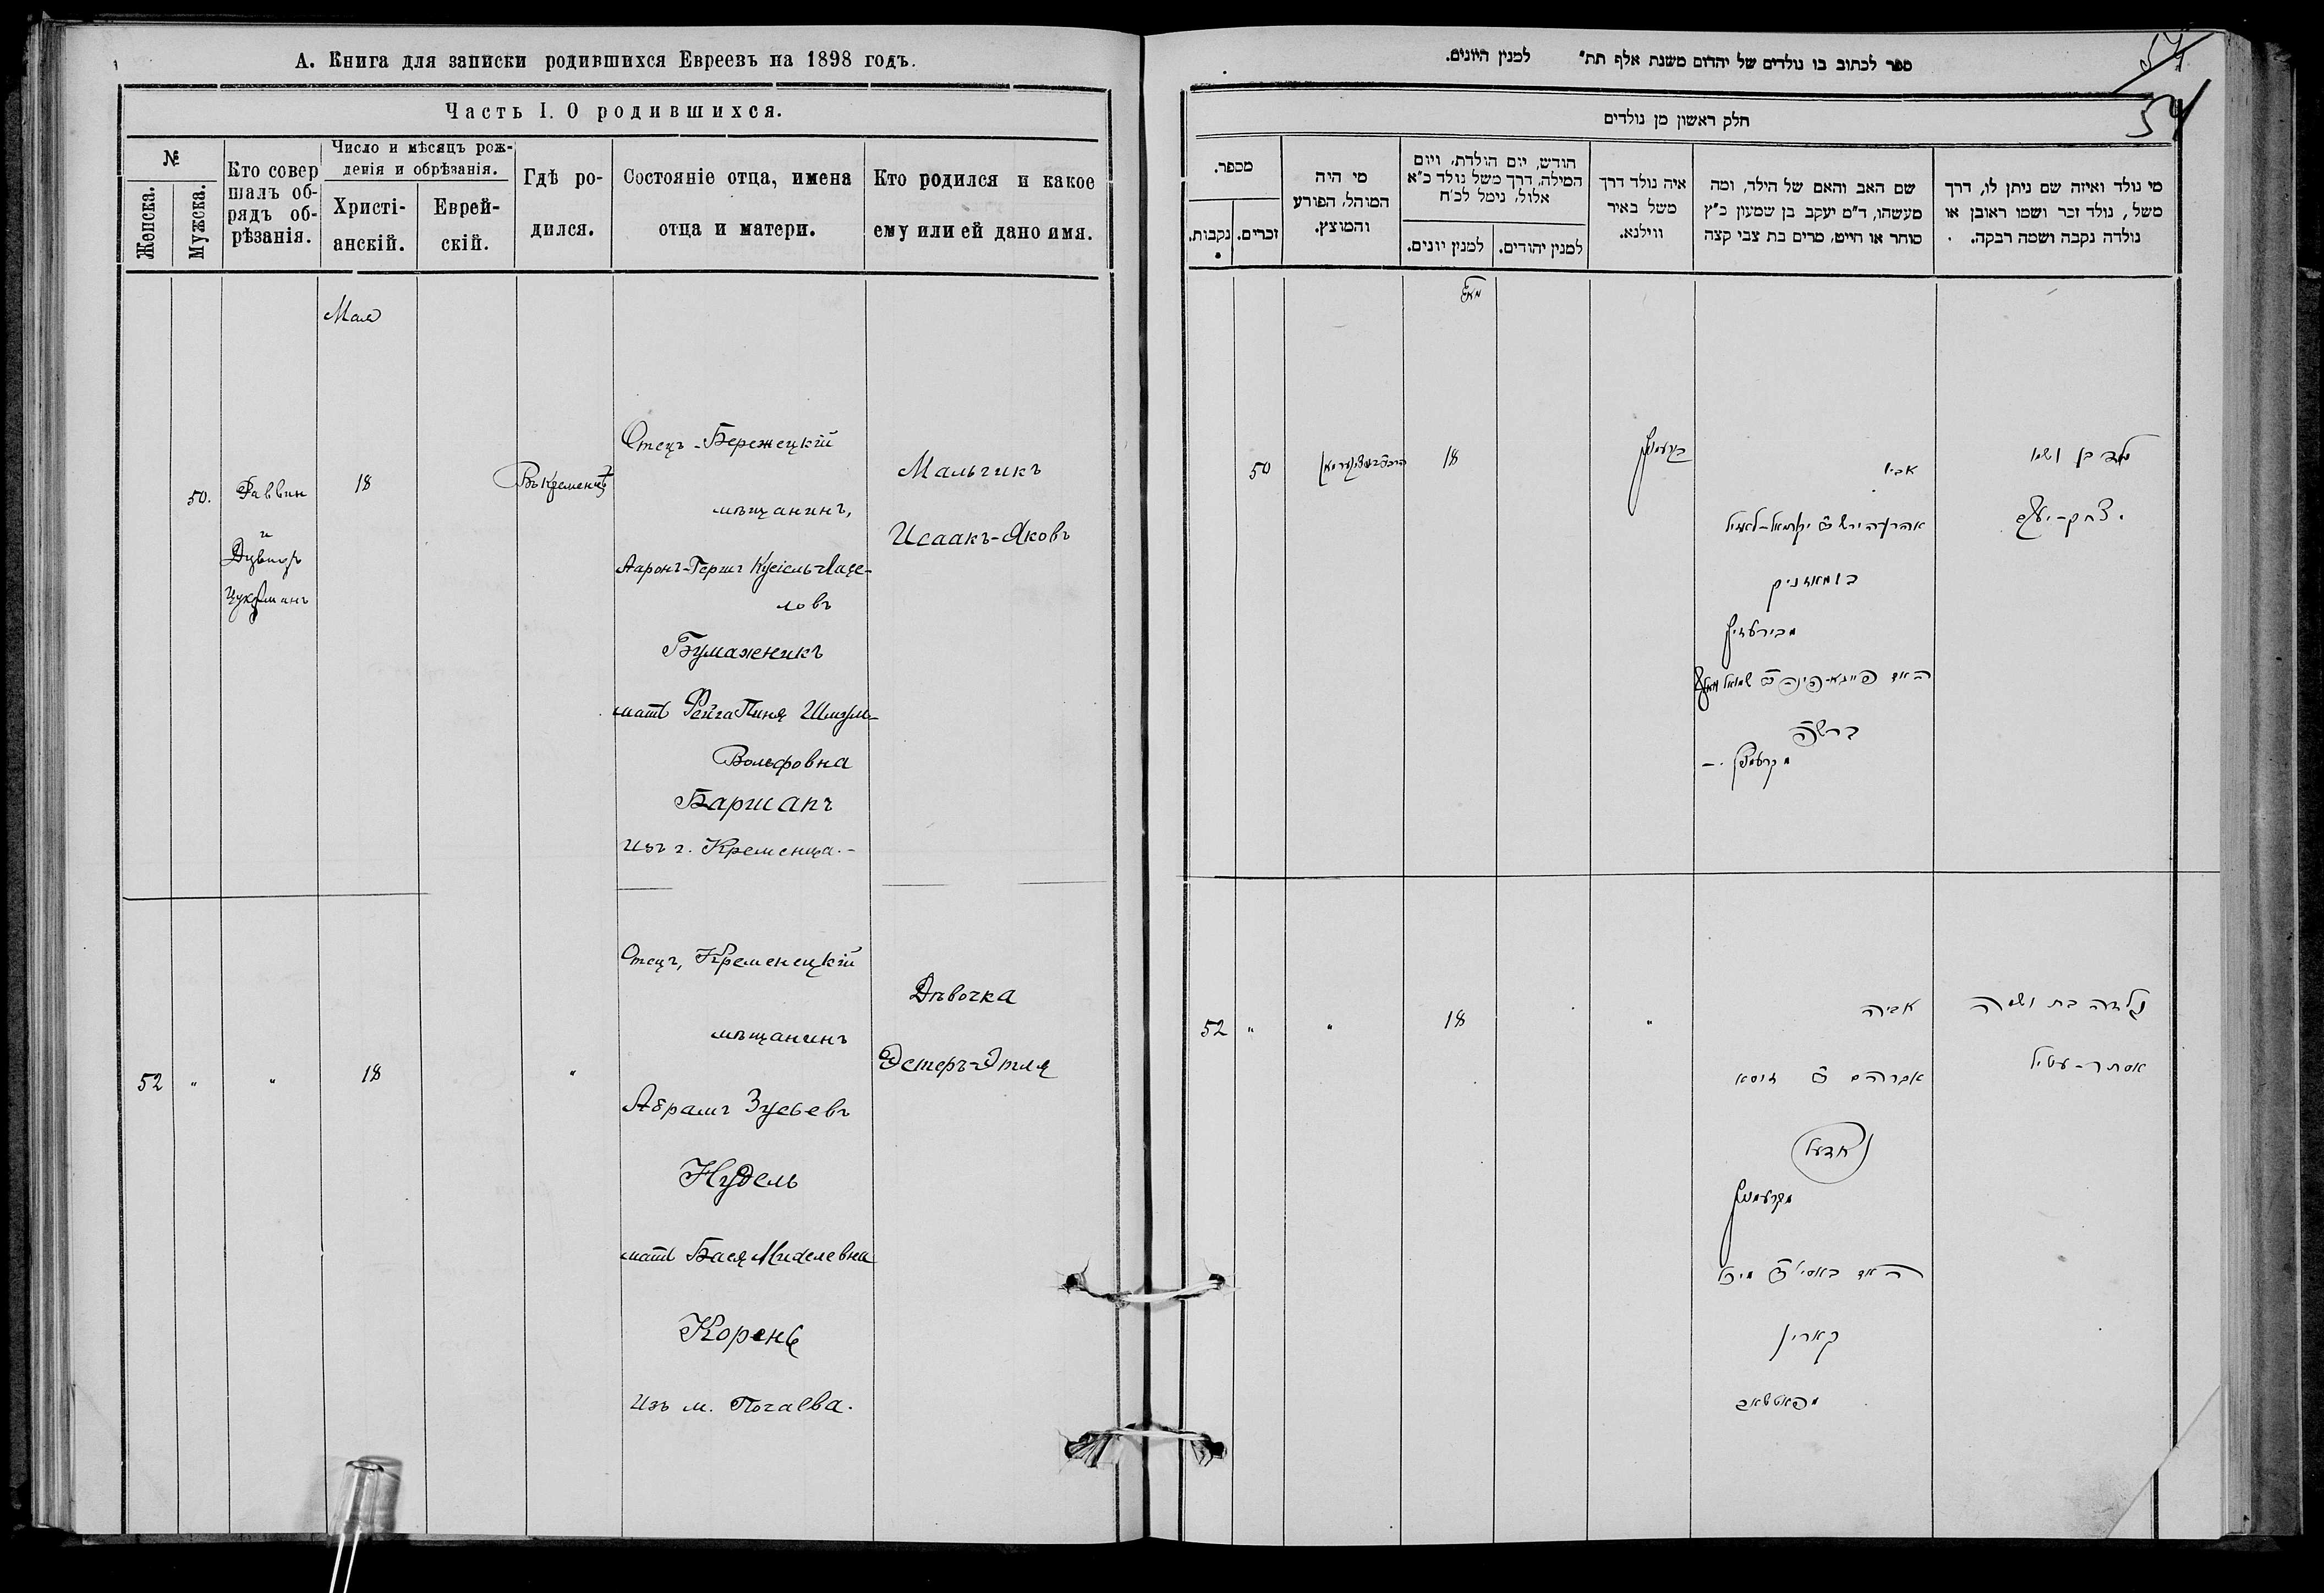 А. Книга для записки родившихся Евреевъ на 1898 годъ.
Часть I. О родившихся.
№
Женска.
Мужска.
Кто совер
шалъ об-
рядъ об-
рѣзанія.
Число и мѣсяцъ рож-
денія и обрѣзанія.
Христі-
анскій.
Еврей-
скій.
Гдѣ ро-
дился.
Состояніе отца, имена
отца и матери.
Кто родился и какое
ему или ей дано имя.
Мая
50.
Раввин
и
Цукерманъ
18
Въ Кременцѣ
Отецъ - Бережецкій
мѣщанинъ,
Ааронъ-Герш Кусіель-Лазе-
ловъ
Бумажникъ
мать Фейга Пиня Шмуль-
Вольфовна
Баршапъ
изъ г. Кременца.-
Мальчикъ
Исаакъ-Яковъ
52 " " 18 "
Отецъ, Кременецкій
мѣщанинъ
Абрамъ Зусьевъ
Нудель
мать Бася Михелевна
Корень
изъ м. Почаева.
Дѣвочка
Эстеръ-Этля
ספר לכתוב בו נולדים של יהדום משנת אלף תת" למנין היונים.
57
54
חלק ראשון מן נולדים
מספר.
נקבות.
זכרים.
מי היה
המוהל, הפורע
והמוצץ.
חודש, יום הולדת, ויום
המילה, דרך משל נולד כ"א
אלול, נימל לכ"ח
למנין יונים.
למנין יהודים.
איה נולד דרך
משל באיר
ווילנא.
שם האב והאם של הילד, ומה
מעשהו, ד"מ יעקב בן שמעון כ"ץ
סוחר או חייט, מרים בת צבי קצה
מי נולד ואיזה שם ניתן לו, דרך
משל, נולד זכר ושמו ראובן או
נולדה נקבה ושמה רבקה.
מאי
50
18
קרעמניץ
אביו
אהרן הירש ב יקותיאל-לאזיל
בומאזניק
מבירעזיץ
האם פייגא-פיניה ב שמואל וואלף
ברשפ
מקרעמניץ. -
נולד בן ושמו
יצחק-יעקב
52 " " 18 "
אביה
אברהם ב זוסא
נודעל
מקרעמניץ
האם באסי' ב מיכל
קארין
מפאטשאב
נולדה בת ושמה
אסתר-עטיל